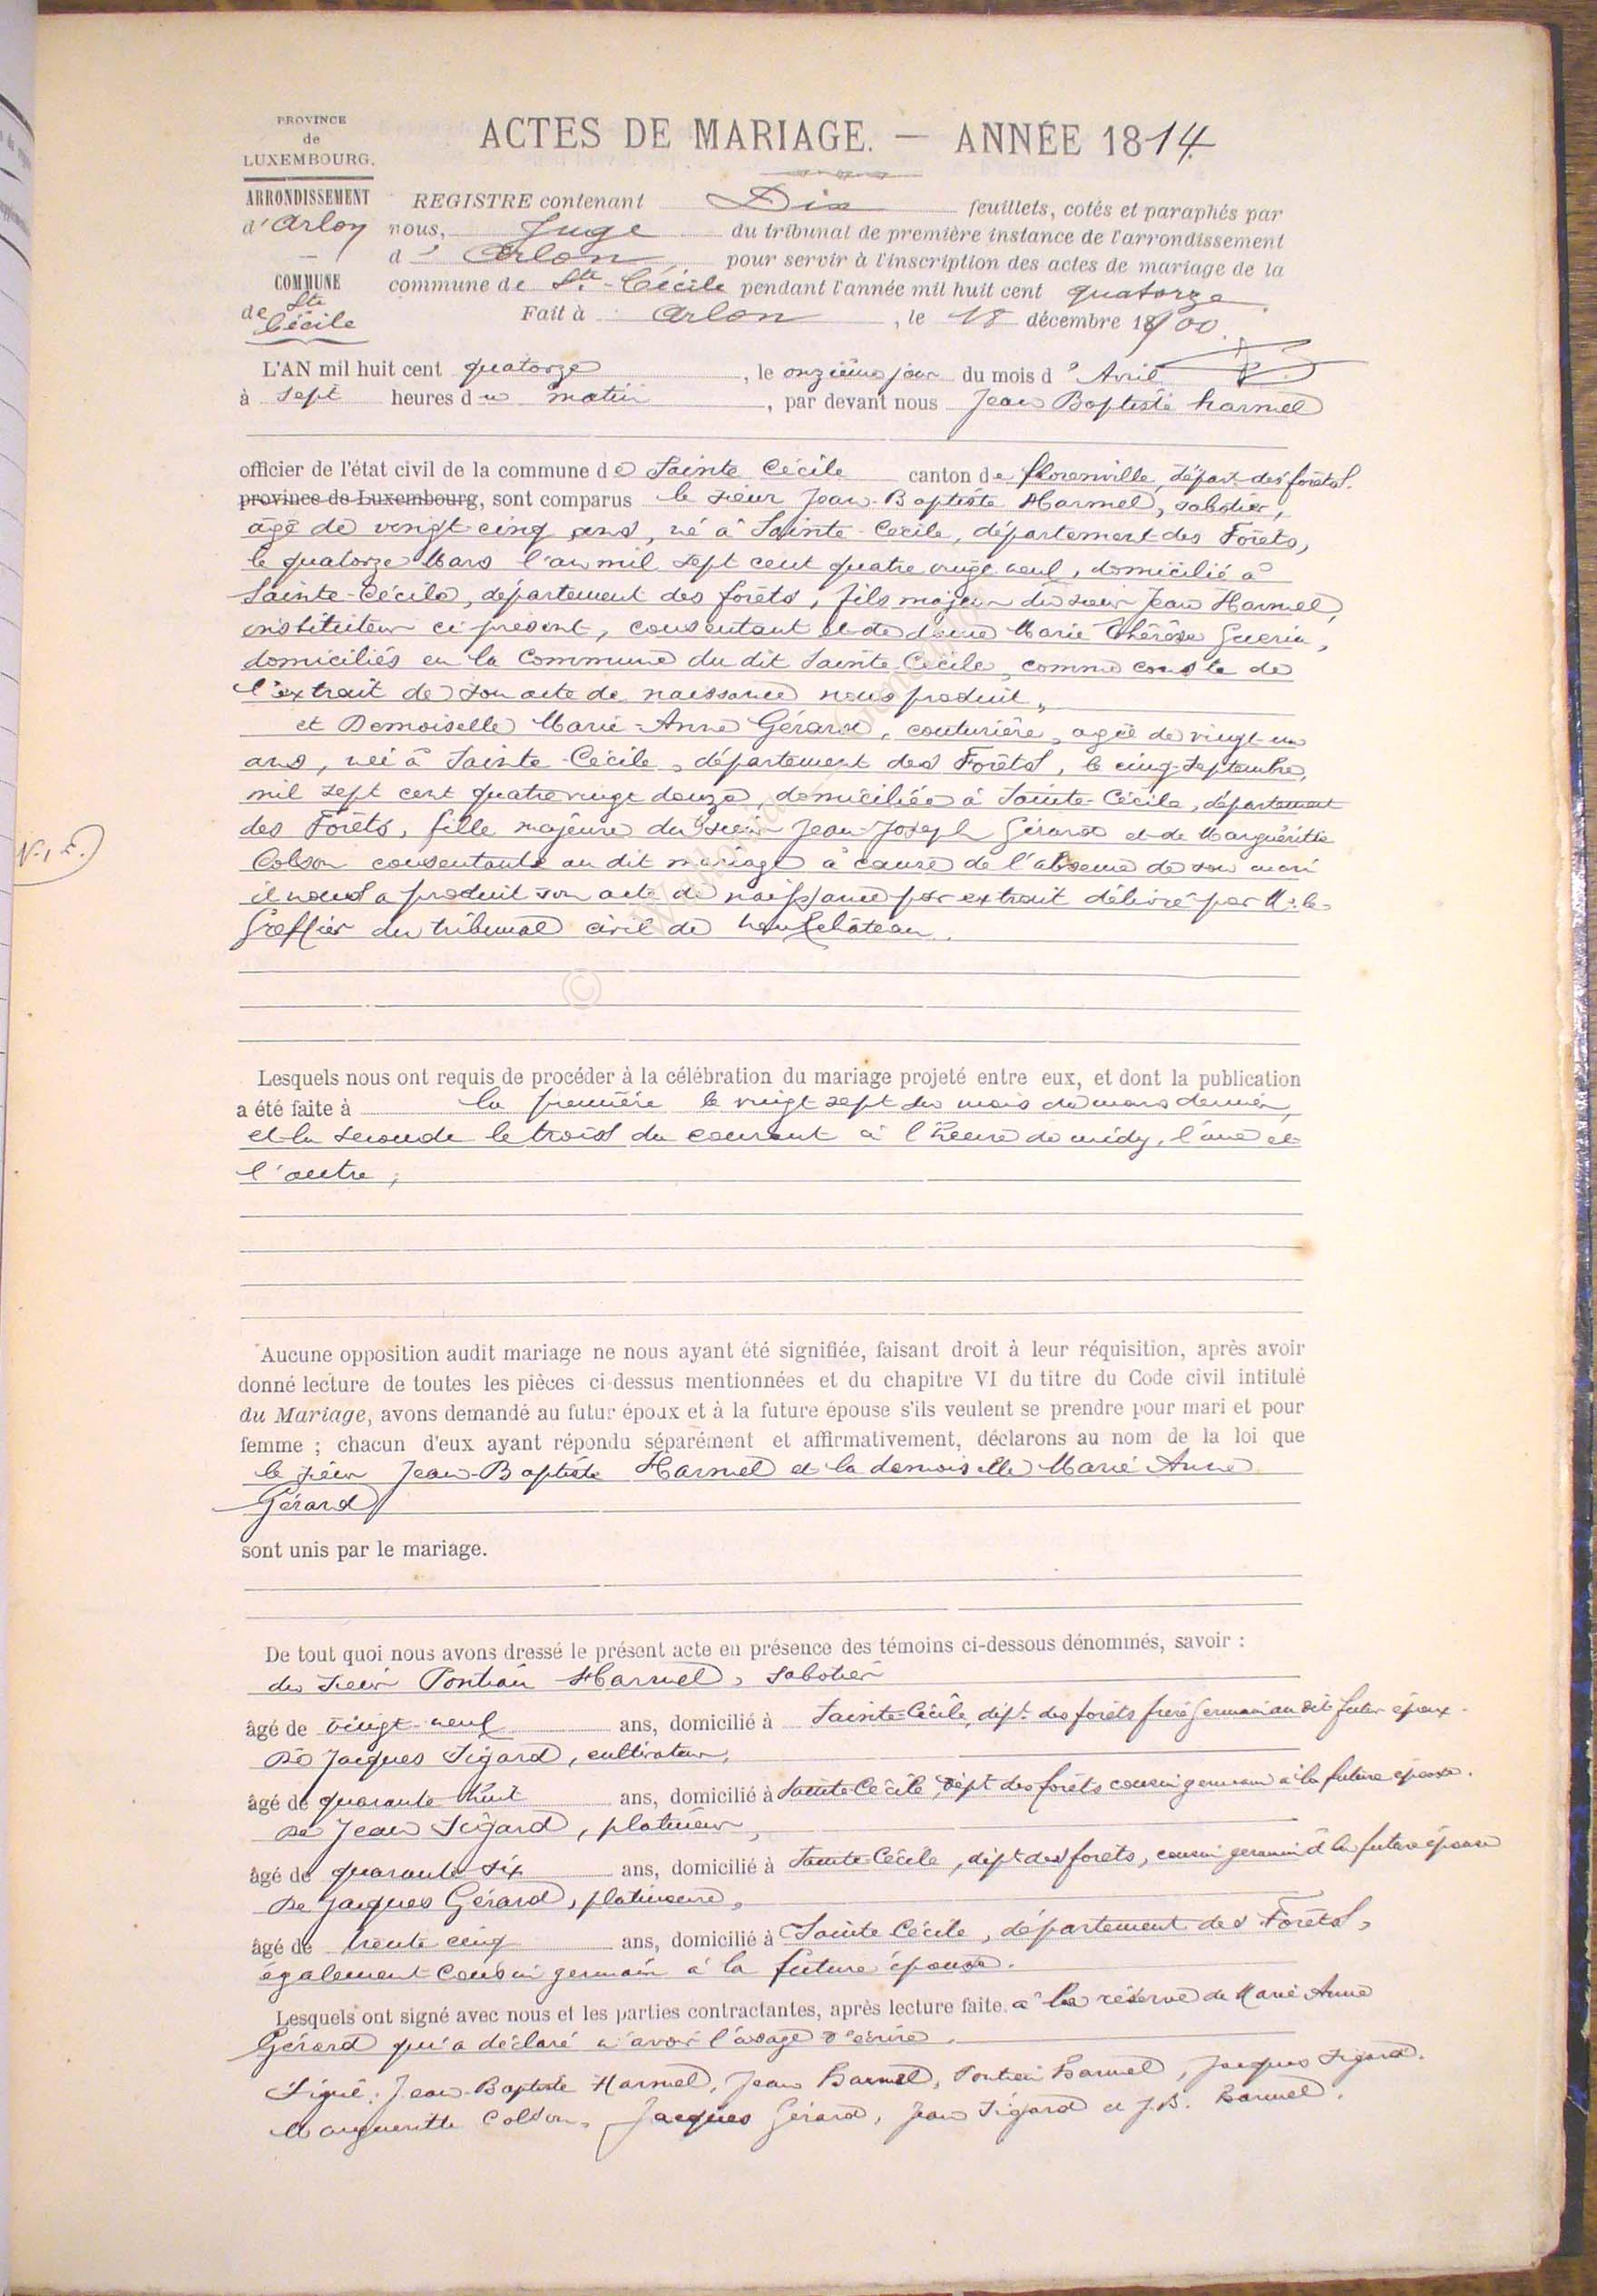 PROVINCE
de
LUXEMBOURG.
ARRONDISSEMENT
d'Arlon
COMMUNE
de Ste
Cécile
ACTES DE MARIAGE. — ANNÉE 1814
REGISTRE contenant Dix feuillets, cotés et paraphés par
nous, Juge du tribunal de première instance de l'arrondissement
d'Arlon pour servir à l'inscription des actes de mariage de la
commune de Ste-Cécile pendant l'année mil huit cent quatorze.
Fait à Arlon, le 18 décembre 1900.
L'AN mil huit cent quatorze, le onzième jour du mois d'Avril
à sept heures du matin, par devant nous Jean Baptiste harmel
officier de l'état civil de la commune de Sainte Cécile canton de florenville, départ. des forêts.
province de Luxembourg, sont comparus le sieur Jean-Baptiste Harmel, sabotier,
age de vingt cinq ans, né à Sainte-Cécile, département des Forêts,
le quatorze Mars l'an mil sept cent quatre vingt neuf, domicilié à
Sainte-Cécile, département des forêts, fils majeur du sieur Jean Harmel,
instituteur ci présent, consentant et de dame Marie Thérèse Guerin,
domiciliés en la Commune du dit Sainte-Cécile, comme conste de
l'extrait de son acte de naissance nous produit,
et Demoiselle Marie-Anne Gérard, couturière, agée de vingt-un
ans, née à Sainte-Cécile, département des Forêts, le cinq septembre,
mil sept cent quatre vingt douze, domiciliée à Sainte-Cécile, département
des Forêts, fille majeure du sieur Jean-Joseph Gérard et de Marguéritte
Colson consentante au dit mariage à cause de l'absence de son mari
il nous a produit son acte de naissance par extrait délivré par Mr. le
Greffier du tribunal civil de neufchâteau.
N. 1 E.
©
Lesquels nous ont requis de procéder à la célébration du mariage projeté entre eux, et dont la publication
a été faite à la première le vingt sept du mois de mars dernier,
et la seconde le trois du courant à l'heure de midy, l'une et
l'autre,
Aucune opposition audit mariage ne nous ayant été signifiée, faisant droit à leur réquisition, après avoir
donné lecture de toutes les pièces ci-dessus mentionnées et du chapitre VI du titre du Code civil intitulé
du Mariage, avons demandé au futur époux et à la future épouse s'ils veulent se prendre pour mari et pour
femme ; chacun d'eux ayant répondu séparément et affirmativement, déclarons au nom de la loi que
le sieur Jean-Baptiste Harmel et la demoiselle Marie Anne
Gérard
sont unis par le mariage.
De tout quoi nous avons dressé le présent acte en présence des témoins ci-dessous dénommés, savoir :
du sieur Pontian Harmel, sabotier
âgé de vingt-neuf ans, domicilié à Sainte-Cécile, dépt. des forêts frère germain au dit futur époux.
De Jacques Sigard, cultivateur,
âgé de quarante huit ans, domicilié à Sainte-Cécile, dépt des forêts cousin germain à la future épouse.
De Jean Sigard, platineur,
âgé de quarante six ans, domicilié à Sainte-Cécile, dépt des forêts, cousin germain à la future épouse
De Jacques Gérard, platineur,
âgé de trente cinq ans, domicilié à Sainte Cécile, département des Forêts,
également cousin germain à la future épouse.
Lesquels ont signé avec nous et les parties contractantes, après lecture faite. à la réserve de Marie Anne
Gérard qui a déclaré n'avoir l'usage d'écrire.
Signé: Jean-Baptiste Harmel, Jean Harmel, Pontien harmel, Jacques Sigard.
Margueritte Colson, Jacques Gérard, Jean Sigard et J.B. harmel.